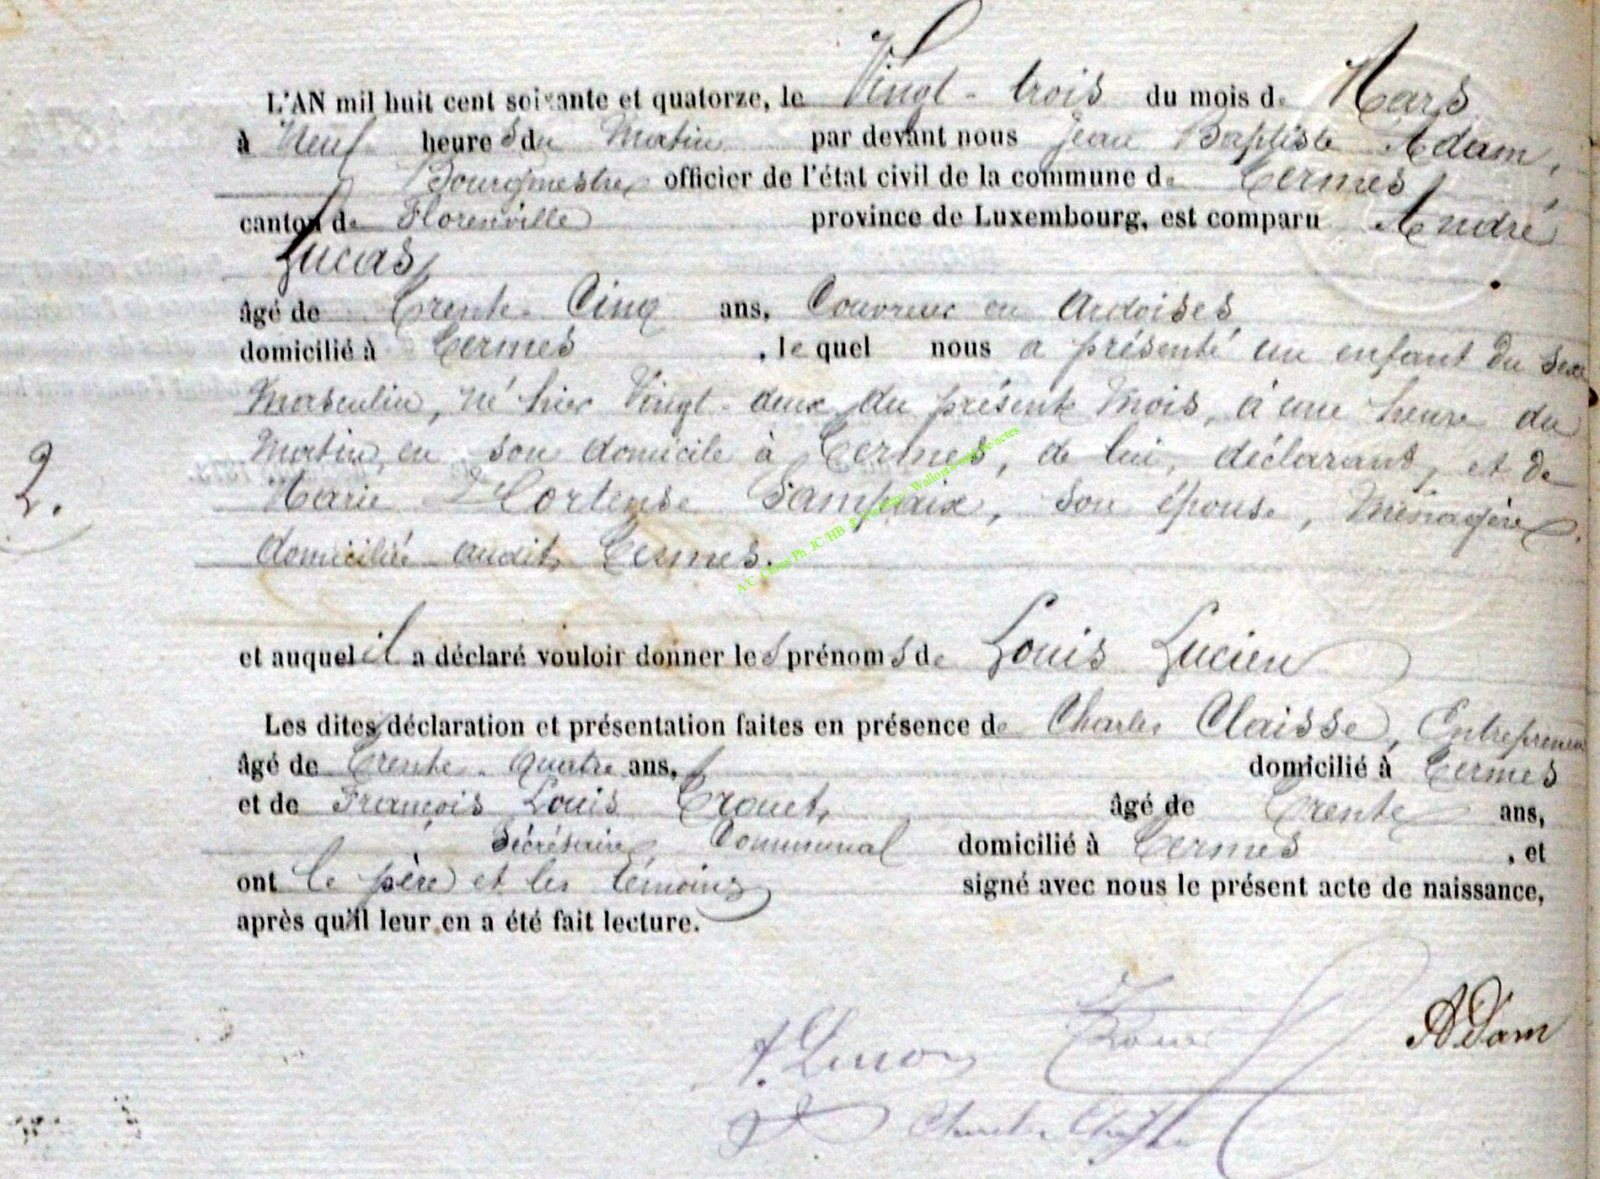 L'AN mil huit cent soixante et quatorze, le Vingt-trois du mois de Mars
à Neuf heures du Matin par devant nous Jean Baptiste Adam,
Bourgmestre officier de l'état civil de la commune de Termes
canton de Florenville province de Luxembourg, est comparu André
Lucas,
âgé de Trente-Cinq ans, Couvreur en Ardoises
domicilié à Termes , lequel nous a présenté un enfant du sexe
Masculin, né hier Vingt-deux du présent Mois, à une heure du
Matin, en son domicile à Termes, de lui, déclarant, et de
2. Marie Hortense Sampaix, son épouse, Ménagère,
domiciliée audit Termes.
et auquel il a déclaré vouloir donner les prénoms de Louis Lucien
Les dites déclaration et présentation faites en présence de Charles Claisse, Entrepreneur
âgé de Trente-quatre ans, domicilié à Termes
et de François Louis Trouet, âgé de Trente ans,
Secrétaire Communal domicilié à Termes , et
ont le père et les témoins signé avec nous le présent acte de naissance,
après qu'il leur en a été fait lecture.
ADam
A. Lucas